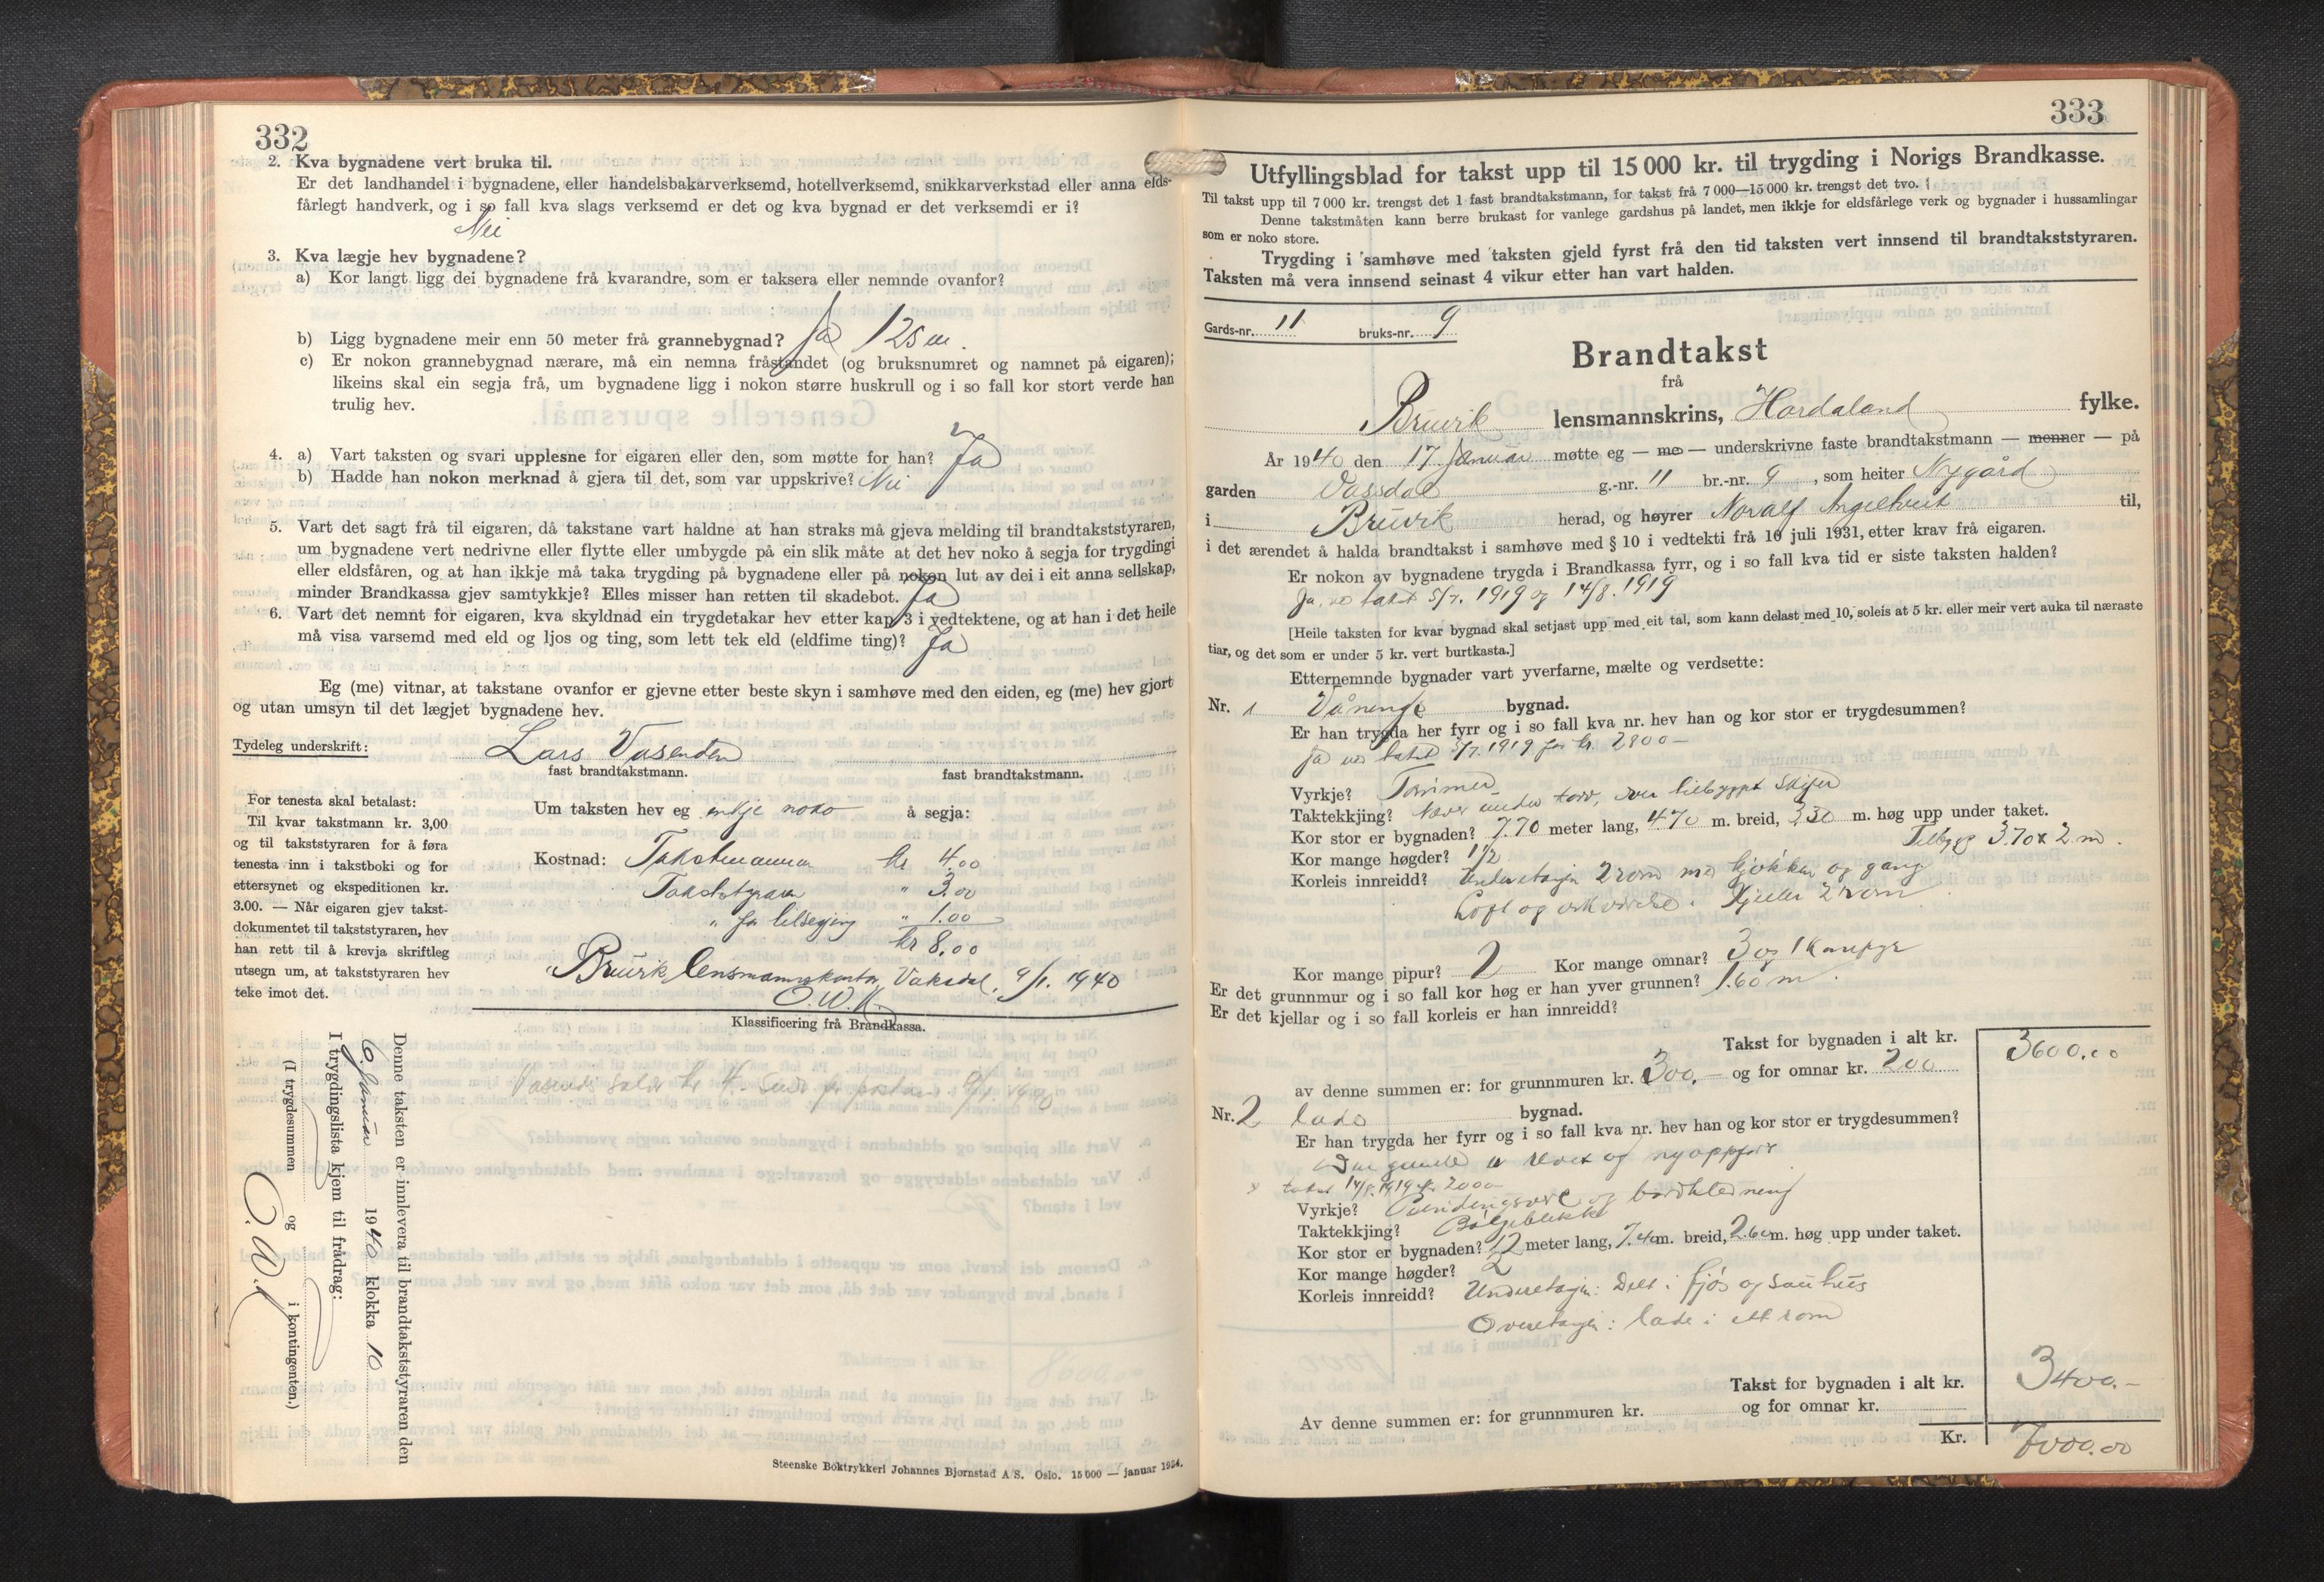 332
2. Kva bygnadene vert bruka til.
Er det landhandel i bygnadene, eller handelsbakarverksemd, hotellverksemd, snikkarverkstad eller anna elds-
fårlegt handverk, og i so fall kva slags verksemd er det og kva bygnad er det verksemdi er i?
Nei
3. Kva lægje hev bygnadene?
a) Kor langt ligg dei bygnadene frå kvarandre, som er taksera eller nemnde ovanfor?
12 s m.
b) Ligg bygnadene meir enn 50 meter frå grannebygnad? Ja
c) Er nokon grannebygnad nærare, må ein nemna fråstandet (og bruksnumret og namnet på eigaren);
likeins skal ein segja frå, um bygnadene ligg i nokon større huskrull og i so fall kor stort verde han
trulig hev.
4. a) Vart taksten og svari upplesne for eigaren eller den, som møtte for han? Ja
b) Hadde han nokon merknad å gjera til det, som var uppskrive? Nei
5. Vart det sagt frå til eigaren, då takstane vart haldne at han straks må gjeva melding til brandtakststyraren,
um bygnadene vert nedrivne eller flytte eller umbygde på ein slik måte at det hev noko å segja for trygdingi
eller eldsfåren, og at han ikkje må taka trygding på bygnadene eller på nokon lut av dei i eit anna sellskap,
minder Brandkassa gjev samtykkje? Elles misser han retten til skadebot. Ja
6. Vart det nemnt for eigaren, kva skyldnad ein trygdetakar hev etter kap 3 i vedtektene, og at han i det heile
må visa varsemd med eld og ljos og ting, som lett tek eld (eldfime ting)? Ja
Eg (me) vitnar, at takstane ovanfor er gjevne etter beste skyn i samhøve med den eiden, eg (me) hev gjort
og utan umsyn til det lægjet bygnadene hev.
Tydeleg underskrift: Lars Vasenden
fast brandtakstmann. fast brandtakstmann.
For tenesta skal betalast:
Til kvar takstmann kr. 3,00
og til takststyraren for å føra
tenesta inn i takstboki og for
ettersynet og ekspeditionen kr.
3.00. — Når eigaren gjev takst-
dokumentet til takststyraren, hev
han rett til å krevja skriftleg
utsegn um, at takststyraren hev
teke imot det.
Um taksten hev eg inkje noko å segja:
Kostnad: Takstmannen kr 4.00
Takststyraren " 3.00
" for 1.00
kr 8.00
Bruvik lensmannskontor, Vaksdal, 9/1. 1940
O.W.K.
Klassificering frå Brandkassa.
1940
Denne taksten er innlevera til brandtakststyraren den
6 januar 1940 klokka 10
I trygdingslista kjem til frådrag:
(I trygdesummen og i kontingenten.)
O.W.K
Steenske Boktrykkeri Johannes Bjørnstad A/S. Oslo. 15 000 — januar 1934.
333
Utfyllingsblad for takst upp til 15 000 kr. til trygding i Norigs Brandkasse.
Til takst upp til 7 000 kr. trengst det 1 fast brandtakstmann, for takst frå 7 000—15 000 kr. trengst det tvo.
Denne takstmåten kann berre brukast for vanlege gardshus på landet, men ikkje for eldsfårlege verk og bygnader i hussamlingar
som er noko store.
Trygding i samhøve med taksten gjeld fyrst frå den tid taksten vert innsend til brandtakststyraren.
Taksten må vera innsend seinast 4 vikur etter han vart halden.
Gards-nr. 11 bruks-nr. 9
Brandtakst
frå
Bruvik lensmannskrins, Hordaland fylke.
År 1940 den 17 Januar møtte eg — me — underskrivne faste brandtakstmann — menner — på
garden Vassdal g.-nr. 11 br.-nr. 9, som heiter Nygård
i Bruvik herad, og høyrer Noralf Angeltveit til,
i det ærendet å halda brandtakst i samhøve med § 10 i vedtekti frå 10 juli 1931, etter krav frå eigaren.
Er nokon av bygnadene trygda i Brandkassa fyrr, og i so fall kva tid er siste taksten halden?
Ja, ved takst 5/7. 1919 og 14/8. 1919
[Heile taksten for kvar bygnad skal setjast upp med eit tal, som kann delast med 10, soleis at 5 kr. eller meir vert auka til næraste
tiar, og det som er under 5 kr. vert burtkasta.]
Etternemnde bygnader vart yverfarne, mælte og verdsette:
Nr. 1 Vånings bygnad.
Er han trygda her fyrr og i so fall kva nr. hev han og kor stor er trygdesummen?
Ja ved takst 5/7. 1919 for kr. 2800 —
Vyrkje? Tømmer
Taktekkjing? Never under torv, over tilbygget skifer
Kor stor er bygnaden? 7.70 meter lang, 4.70 m. breid, 3.30 m. høg upp under taket.
Tilbygg 3.70 x 2 m.
Kor mange høgder? 1 1/2
Korleis innreidd? Underetagen 2 rom med kjøkken og gang
Loft og Kjeller 2 rom
Kor mange pipur? 2 Kor mange omnar? 3 og 1 komfyr
Er det grunnmur og i so fall kor høg er han yver grunnen? 1.60 m.
Er det kjellar og i so fall korleis er han innreidd?
Takst for bygnaden i alt kr. 3600.00
av denne summen er: for grunnmuren kr. 300.— og for omnar kr. 200
Nr. 2 lade bygnad.
Er han trygda her fyrr og i so fall kva nr. hev han og kor stor er trygdesummen?
Den gamle er revet og ny oppført
takst 14/8. 1919 kr. 2000
Vyrkje? Bindingsverk og bordkledning
Taktekkjing? Bølgeblikk
Kor stor er bygnaden? 12 meter lang, 7.40 m. breid, 2.60 m. høg upp under taket.
Kor mange høgder? 2
Korleis innreidd? Underetagen: Delt i fjøs og sauhus
Overetagen: lade i ett rom
Takst for bygnaden i alt kr. 3400.—
Av denne summen er: for grunnmuren kr. og for omnar kr.
Kr. 7000.00